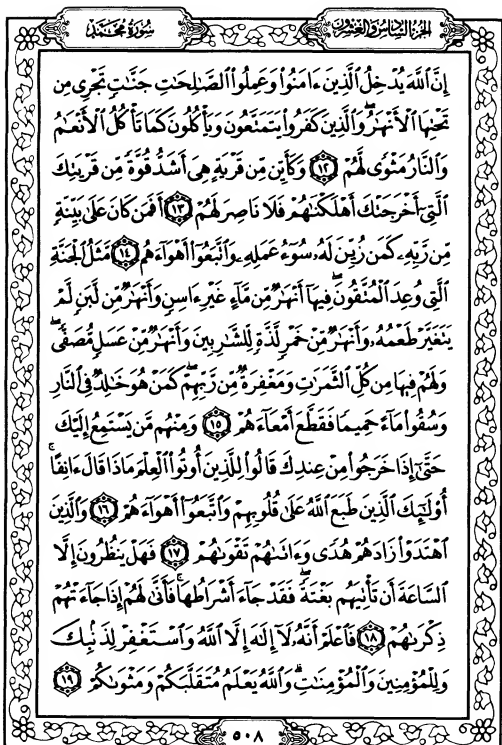 سُورَةُ مُحَمَّد
الجُزءُ السَّادِسُ وَالعِشْرُونَ
إِنَّ ٱللَّهَ يُدْخِلُ ٱلَّذِينَ ءَامَنُوا۟ وَعَمِلُوا۟ ٱلصَّٰلِحَٰتِ جَنَّٰتٍ تَجْرِى مِن
تَحْتِهَا ٱلْأَنْهَٰرُ ۖ وَٱلَّذِينَ كَفَرُوا۟ يَتَمَتَّعُونَ وَيَأْكُلُونَ كَمَا تَأْكُلُ ٱلْأَنْعَٰمُ
وَٱلنَّارُ مَثْوًى لَّهُمْ ١٢ وَكَأَيِّن مِّن قَرْيَةٍ هِىَ أَشَدُّ قُوَّةً مِّن قَرْيَتِكَ
ٱلَّتِىٓ أَخْرَجَتْكَ أَهْلَكْنَٰهُمْ فَلَا نَاصِرَ لَهُمْ ١٣ أَفَمَن كَانَ عَلَىٰ بَيِّنَةٍ
مِّن رَّبِّهِۦ كَمَن زُيِّنَ لَهُۥ سُوٓءُ عَمَلِهِۦ وَٱتَّبَعُوٓا۟ أَهْوَآءَهُم ١٤ مَّثَلُ ٱلْجَنَّةِ
ٱلَّتِى وُعِدَ ٱلْمُتَّقُونَ ۖ فِيهَآ أَنْهَٰرٌ مِّن مَّآءٍ غَيْرِ ءَاسِنٍ وَأَنْهَٰرٌ مِّن لَّبَنٍ لَّمْ
يَتَغَيَّرْ طَعْمُهُۥ وَأَنْهَٰرٌ مِّنْ خَمْرٍ لَّذَّةٍ لِّلشَّٰرِبِينَ وَأَنْهَٰرٌ مِّنْ عَسَلٍ مُّصَفًّى ۖ
وَلَهُمْ فِيهَا مِن كُلِّ ٱلثَّمَرَٰتِ وَمَغْفِرَةٌ مِّن رَّبِّهِمْ ۖ كَمَنْ هُوَ خَٰلِدٌ فِى ٱلنَّارِ
وَسُقُوا۟ مَآءً حَمِيمًا فَقَطَّعَ أَمْعَآءَهُمْ ١٥ وَمِنْهُم مَّن يَسْتَمِعُ إِلَيْكَ
حَتَّىٰٓ إِذَا خَرَجُوا۟ مِنْ عِندِكَ قَالُوا۟ لِلَّذِينَ أُوتُوا۟ ٱلْعِلْمَ مَاذَا قَالَ ءَانِفًا ۚ
أُو۟لَٰٓئِكَ ٱلَّذِينَ طَبَعَ ٱللَّهُ عَلَىٰ قُلُوبِهِمْ وَٱتَّبَعُوٓا۟ أَهْوَآءَهُمْ ١٦ وَٱلَّذِينَ
ٱهْتَدَوْا۟ زَادَهُمْ هُدًى وَءَاتَىٰهُمْ تَقْوَىٰهُمْ ١٧ فَهَلْ يَنظُرُونَ إِلَّا
ٱلسَّاعَةَ أَن تَأْتِيَهُم بَغْتَةً ۖ فَقَدْ جَآءَ أَشْرَاطُهَا ۚ فَأَنَّىٰ لَهُمْ إِذَا جَآءَتْهُمْ
ذِكْرَىٰهُمْ ١٨ فَٱعْلَمْ أَنَّهُۥ لَآ إِلَٰهَ إِلَّا ٱللَّهُ وَٱسْتَغْفِرْ لِذَنۢبِكَ
وَلِلْمُؤْمِنِينَ وَٱلْمُؤْمِنَٰتِ ۗ وَٱللَّهُ يَعْلَمُ مُتَقَلَّبَكُمْ وَمَثْوَىٰكُمْ ١٩
٥٠٨